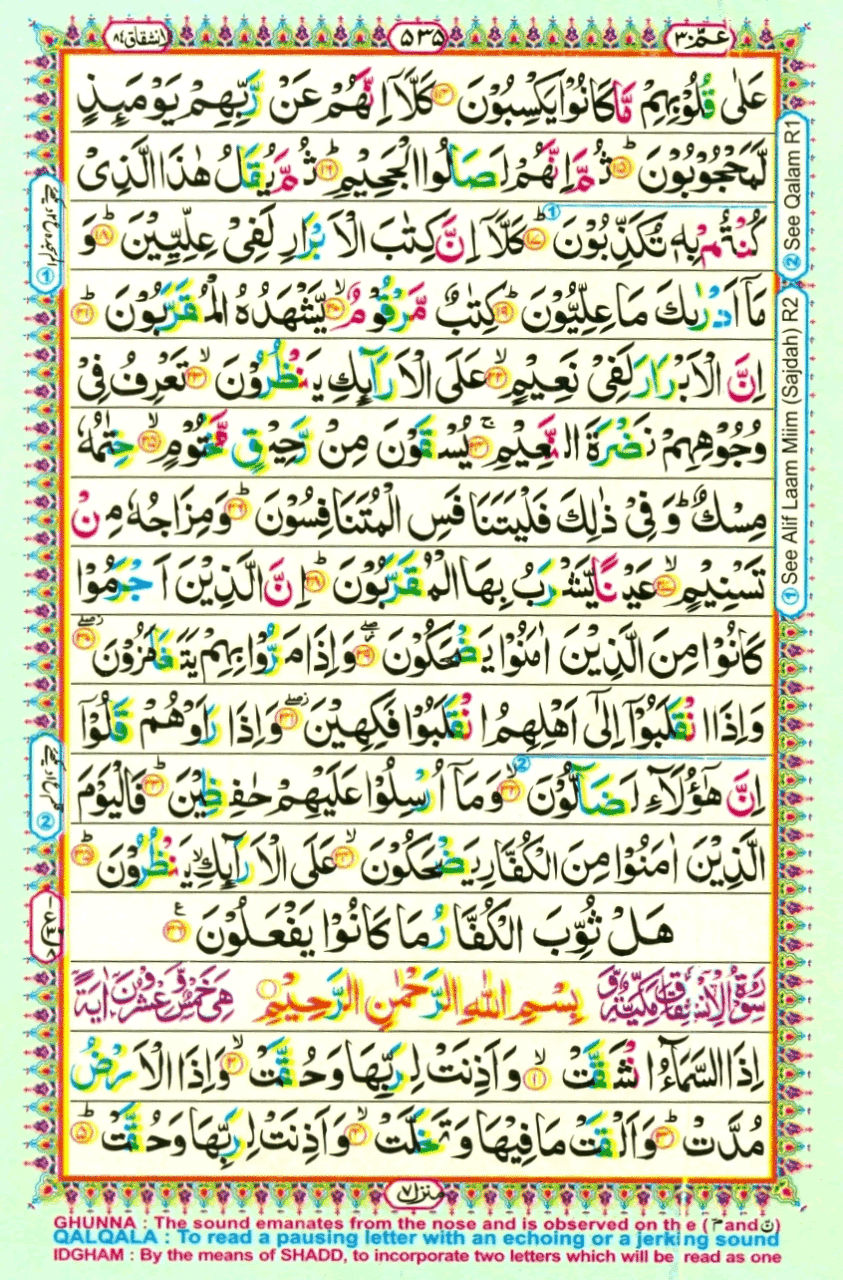 عَمَّ ۳۰
۵۳۵
الانشقاق ۸۴
عَلٰى قُلُوْبِهِمْ مَّا كَانُوْا يَكْسِبُوْنَ ۝۱۴ كَلَّاۤ اِنَّهُمْ عَنْ رَّبِّهِمْ يَوْمَىِٕذٍ
لَّمَحْجُوْبُوْنَؕ ۝۱۵ ثُمَّ اِنَّهُمْ لَصَالُوا الْجَحِيْمِؕ ۝۱۶ ثُمَّ يُقَالُ هٰذَا الَّذِىْ
كُنْتُمْ بِهٖ تُكَذِّبُوْنَؕ ۝۱۷ كَلَّاۤ اِنَّ كِتٰبَ الْاَبْرَارِ لَفِىْ عِلِّيِّيْنَؕ ۝۱۸ وَ
مَاۤ اَدْرٰىكَ مَا عِلِّيُّوْنَؕ ۝۱۹ كِتٰبٌ مَّرْقُوْمٌۙ ۝۲۰ يَّشْهَدُهُ الْمُقَرَّبُوْنَؕ ۝۲۱
اِنَّ الْاَبْرَارَ لَفِىْ نَعِيْمٍۙ ۝۲۲ عَلَى الْاَرَآىِٕكِ يَنْظُرُوْنَۙ ۝۲۳ تَعْرِفُ فِىْ
وُجُوْهِهِمْ نَضْرَةَ النَّعِيْمِۚ ۝۲۴ يُسْقَوْنَ مِنْ رَّحِيْقٍ مَّخْتُوْمٍۙ ۝۲۵ خِتٰمُهٗ
مِسْكٌؕ وَفِىْ ذٰلِكَ فَلْيَتَنَافَسِ الْمُتَنَافِسُوْنَؕ ۝۲۶ وَمِزَاجُهٗ مِنْ
تَسْنِيْمٍۙ ۝۲۷ عَيْنًا يَّشْرَبُ بِهَا الْمُقَرَّبُوْنَؕ ۝۲۸ اِنَّ الَّذِيْنَ اَجْرَمُوْا
كَانُوْا مِنَ الَّذِيْنَ اٰمَنُوْا يَضْحَكُوْنَ ۝۲۹ وَاِذَا مَرُّوْا بِهِمْ يَتَغَامَزُوْنَ ۝۳۰
وَاِذَا انْقَلَبُوْۤا اِلٰٓى اَهْلِهِمُ انْقَلَبُوْا فَكِهِيْنَ ۝۳۱ وَاِذَا رَاَوْهُمْ قَالُوْۤا
اِنَّ هٰٓؤُلَآءِ لَضَآلُّوْنَۙ ۝۳۲ وَمَاۤ اُرْسِلُوْا عَلَيْهِمْ حٰفِظِيْنَؕ ۝۳۳ فَالْيَوْمَ
الَّذِيْنَ اٰمَنُوْا مِنَ الْكُفَّارِ يَضْحَكُوْنَۙ ۝۳۴ عَلَى الْاَرَآىِٕكِۙ يَنْظُرُوْنَؕ ۝۳۵
هَلْ ثُوِّبَ الْكُفَّارُ مَا كَانُوْا يَفْعَلُوْنَ ۝۳۶
سُوْرَةُ الْاِنْشِقَاقِ مَكِّيَّةٌ وَّ بِسْمِ اللّٰهِ الرَّحْمٰنِ الرَّحِيْمِ هِىَ خَمْسٌ وَّعِشْرُوْنَ اٰيَةً
اِذَا السَّمَآءُ انْشَقَّتْۙ ۝۱ وَاَذِنَتْ لِرَبِّهَا وَحُقَّتْۙ ۝۲ وَاِذَا الْاَرْضُ
مُدَّتْؕ ۝۳ وَاَلْقَتْ مَا فِيْهَا وَتَخَلَّتْۙ ۝۴ وَاَذِنَتْ لِرَبِّهَا وَحُقَّتْؕ ۝۵
② See Qalam R1
① See Alif Laam Miim (Sajdah) R2
منزل ۷
GHUNNA : The sound emanates from the nose and is observed on the (مّ and نّ)
QALQALA : To read a pausing letter with an echoing or a jerking sound
IDGHAM : By the means of SHADD, to incorporate two letters which will be read as one